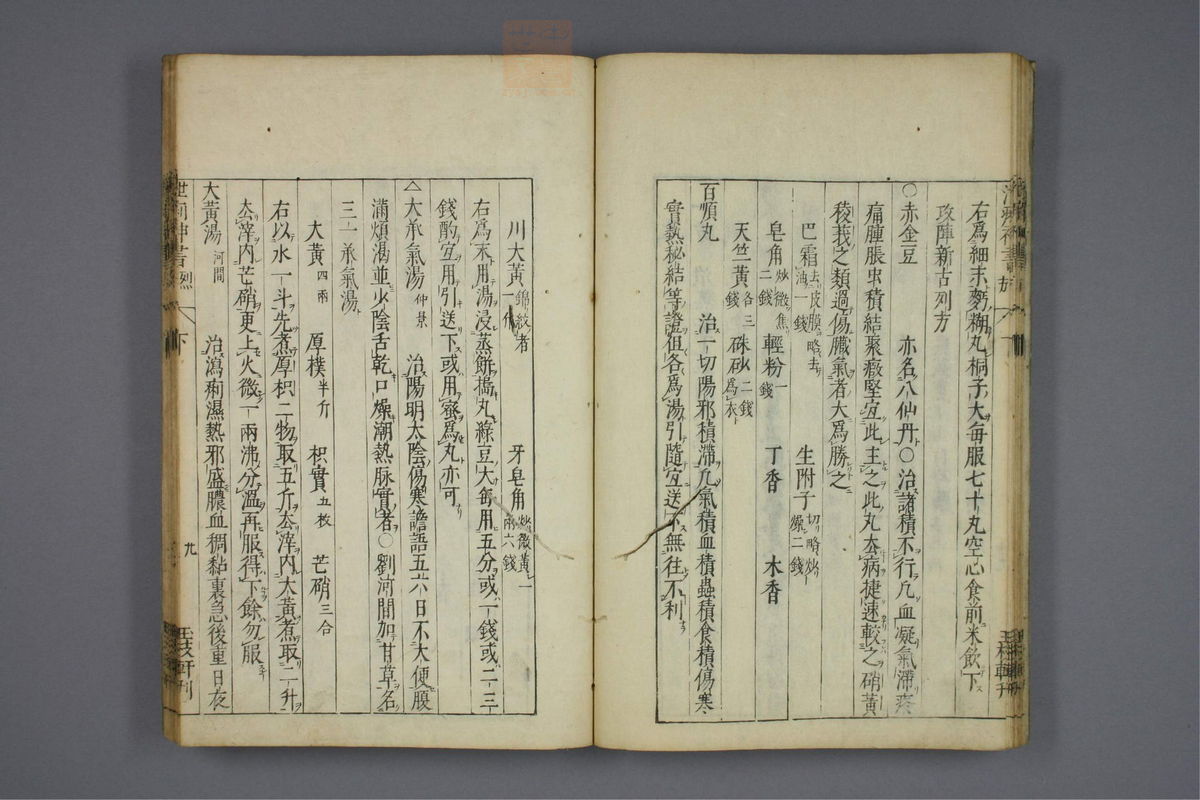 右爲細末麪糊丸桐子大每服七十丸空心食前米飲下
攻陣新古列方
〇赤金豆 亦名八仙丹〇治諸積不行凡血凝氣滯疼
痛腫脹虫積結聚癥堅宜此主之此丸去病捷速較之硝黃
稜莪之類過傷臟氣者大爲勝之
巴霜去皮膜略去油一錢 生附子切略炒燥二錢
皂角炒微焦二錢 輕粉一錢 丁香 木香
天竺黃各三錢 硃砂二錢爲衣
百順丸 治一切陽邪積滯凡氣積血積蟲積食積傷寒
實熱秘結等證但各爲湯引隨宜送下無往不利
川大黃錦紋者一斤 牙皂角炒微黃一兩六錢
右爲末用湯浸蒸餅搗丸綠豆大每用五分或一錢或二三
錢酌宜用引送下或用蜜爲丸亦可
△大承氣湯仲景 治陽明太陰傷寒譫語五六日不大便腹
滿煩渴並少陰舌乾口燥潮熱脉實者〇劉河間加甘草名
三一承氣湯
大黃四兩 厚樸半斤 枳實五枚 芒硝三合
右以水一斗先煮厚枳二物取五升去滓內大黃煮取二升
去滓內芒硝更上火微一兩沸分溫再服得下餘勿服
大黃湯河間 治瀉痢濕熱邪盛膿血稠黏裏急後重日夜
烈
下
九